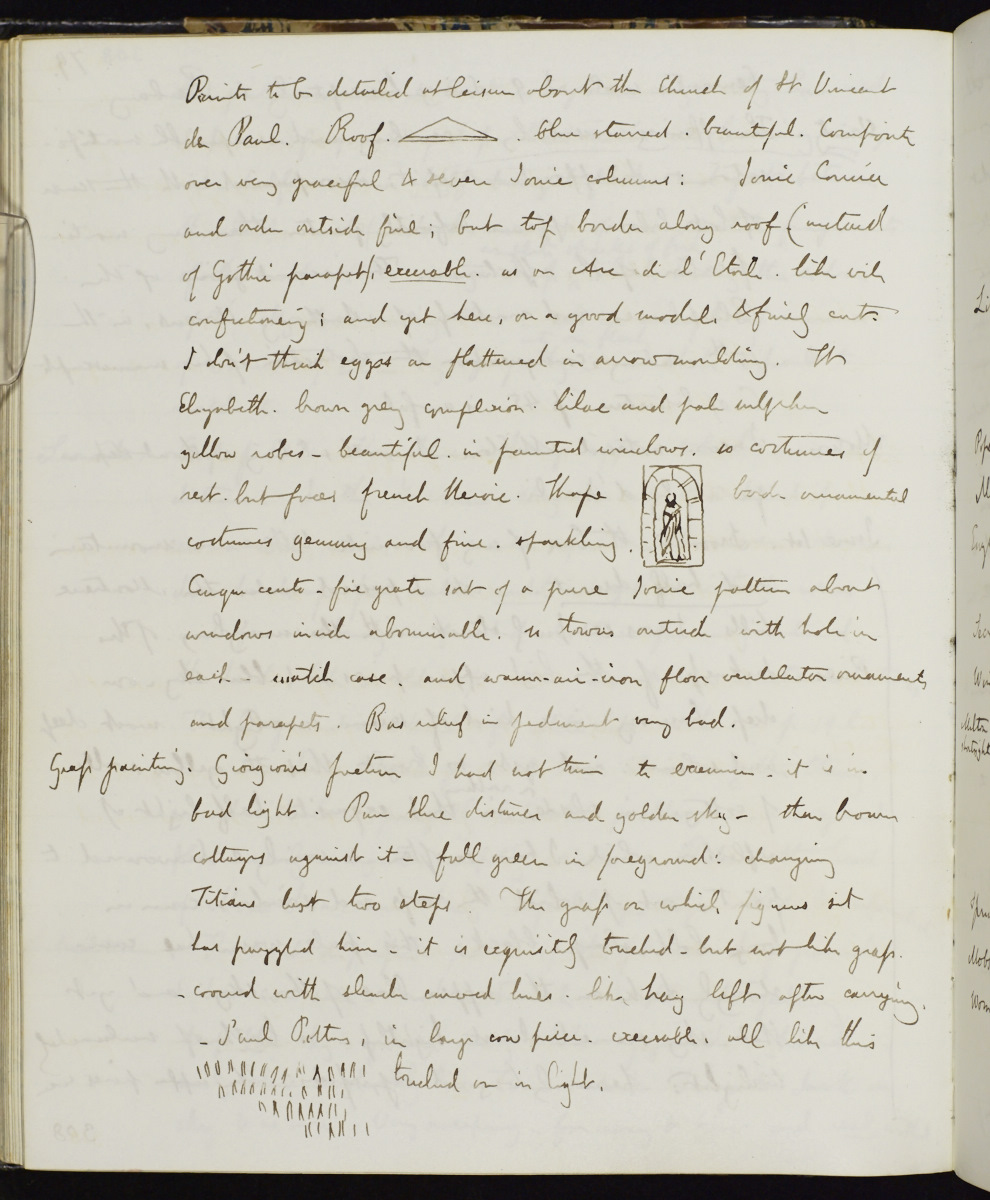 Points to be detailed at leisure about the Church of St Vincent
de Paul. Roof. blue starred. beautiful. Composite
over very graceful & severe Ionic columns: Ionic Cornice
and order outside fine; but top border along roof (instead
of Gothic parapet), execrable. as on Arc de l'Etoile. like vile
confectionery; and yet here, on a good model, & finely cut.
I don't think eggs are flattened in arrow moulding. St
Elizabeth. brown grey complexion. lilac and pale sulphur
yellow robes - beautiful. in painted windows. so costumes of
rest. but faces french Heroic. Shape border ornamental
costumes gemmy and fine. sparkling.
Cinque cento - fire grate sort of a pure Ionic pattern about
windows inside abominable. so towers outside with hole in
each - watch case. and warm-air-iron floor ventilator ornaments
and parapets. Bas relief in pediment very bad.
Grass painting. Giorgione's picture I had not time to examine - it is in
bad light. Pure blue distance and golden sky - then brown
cottages against it - full green in foreground: changing
Titians last two steps. The grass on which figures sit
has puzzled him - it is exquisitely touched - but not like grass.
- covered with slender curved lines. like hay left after carrying.
- Paul Potters, in large cow piece. execrable. all like this
touched on in light.